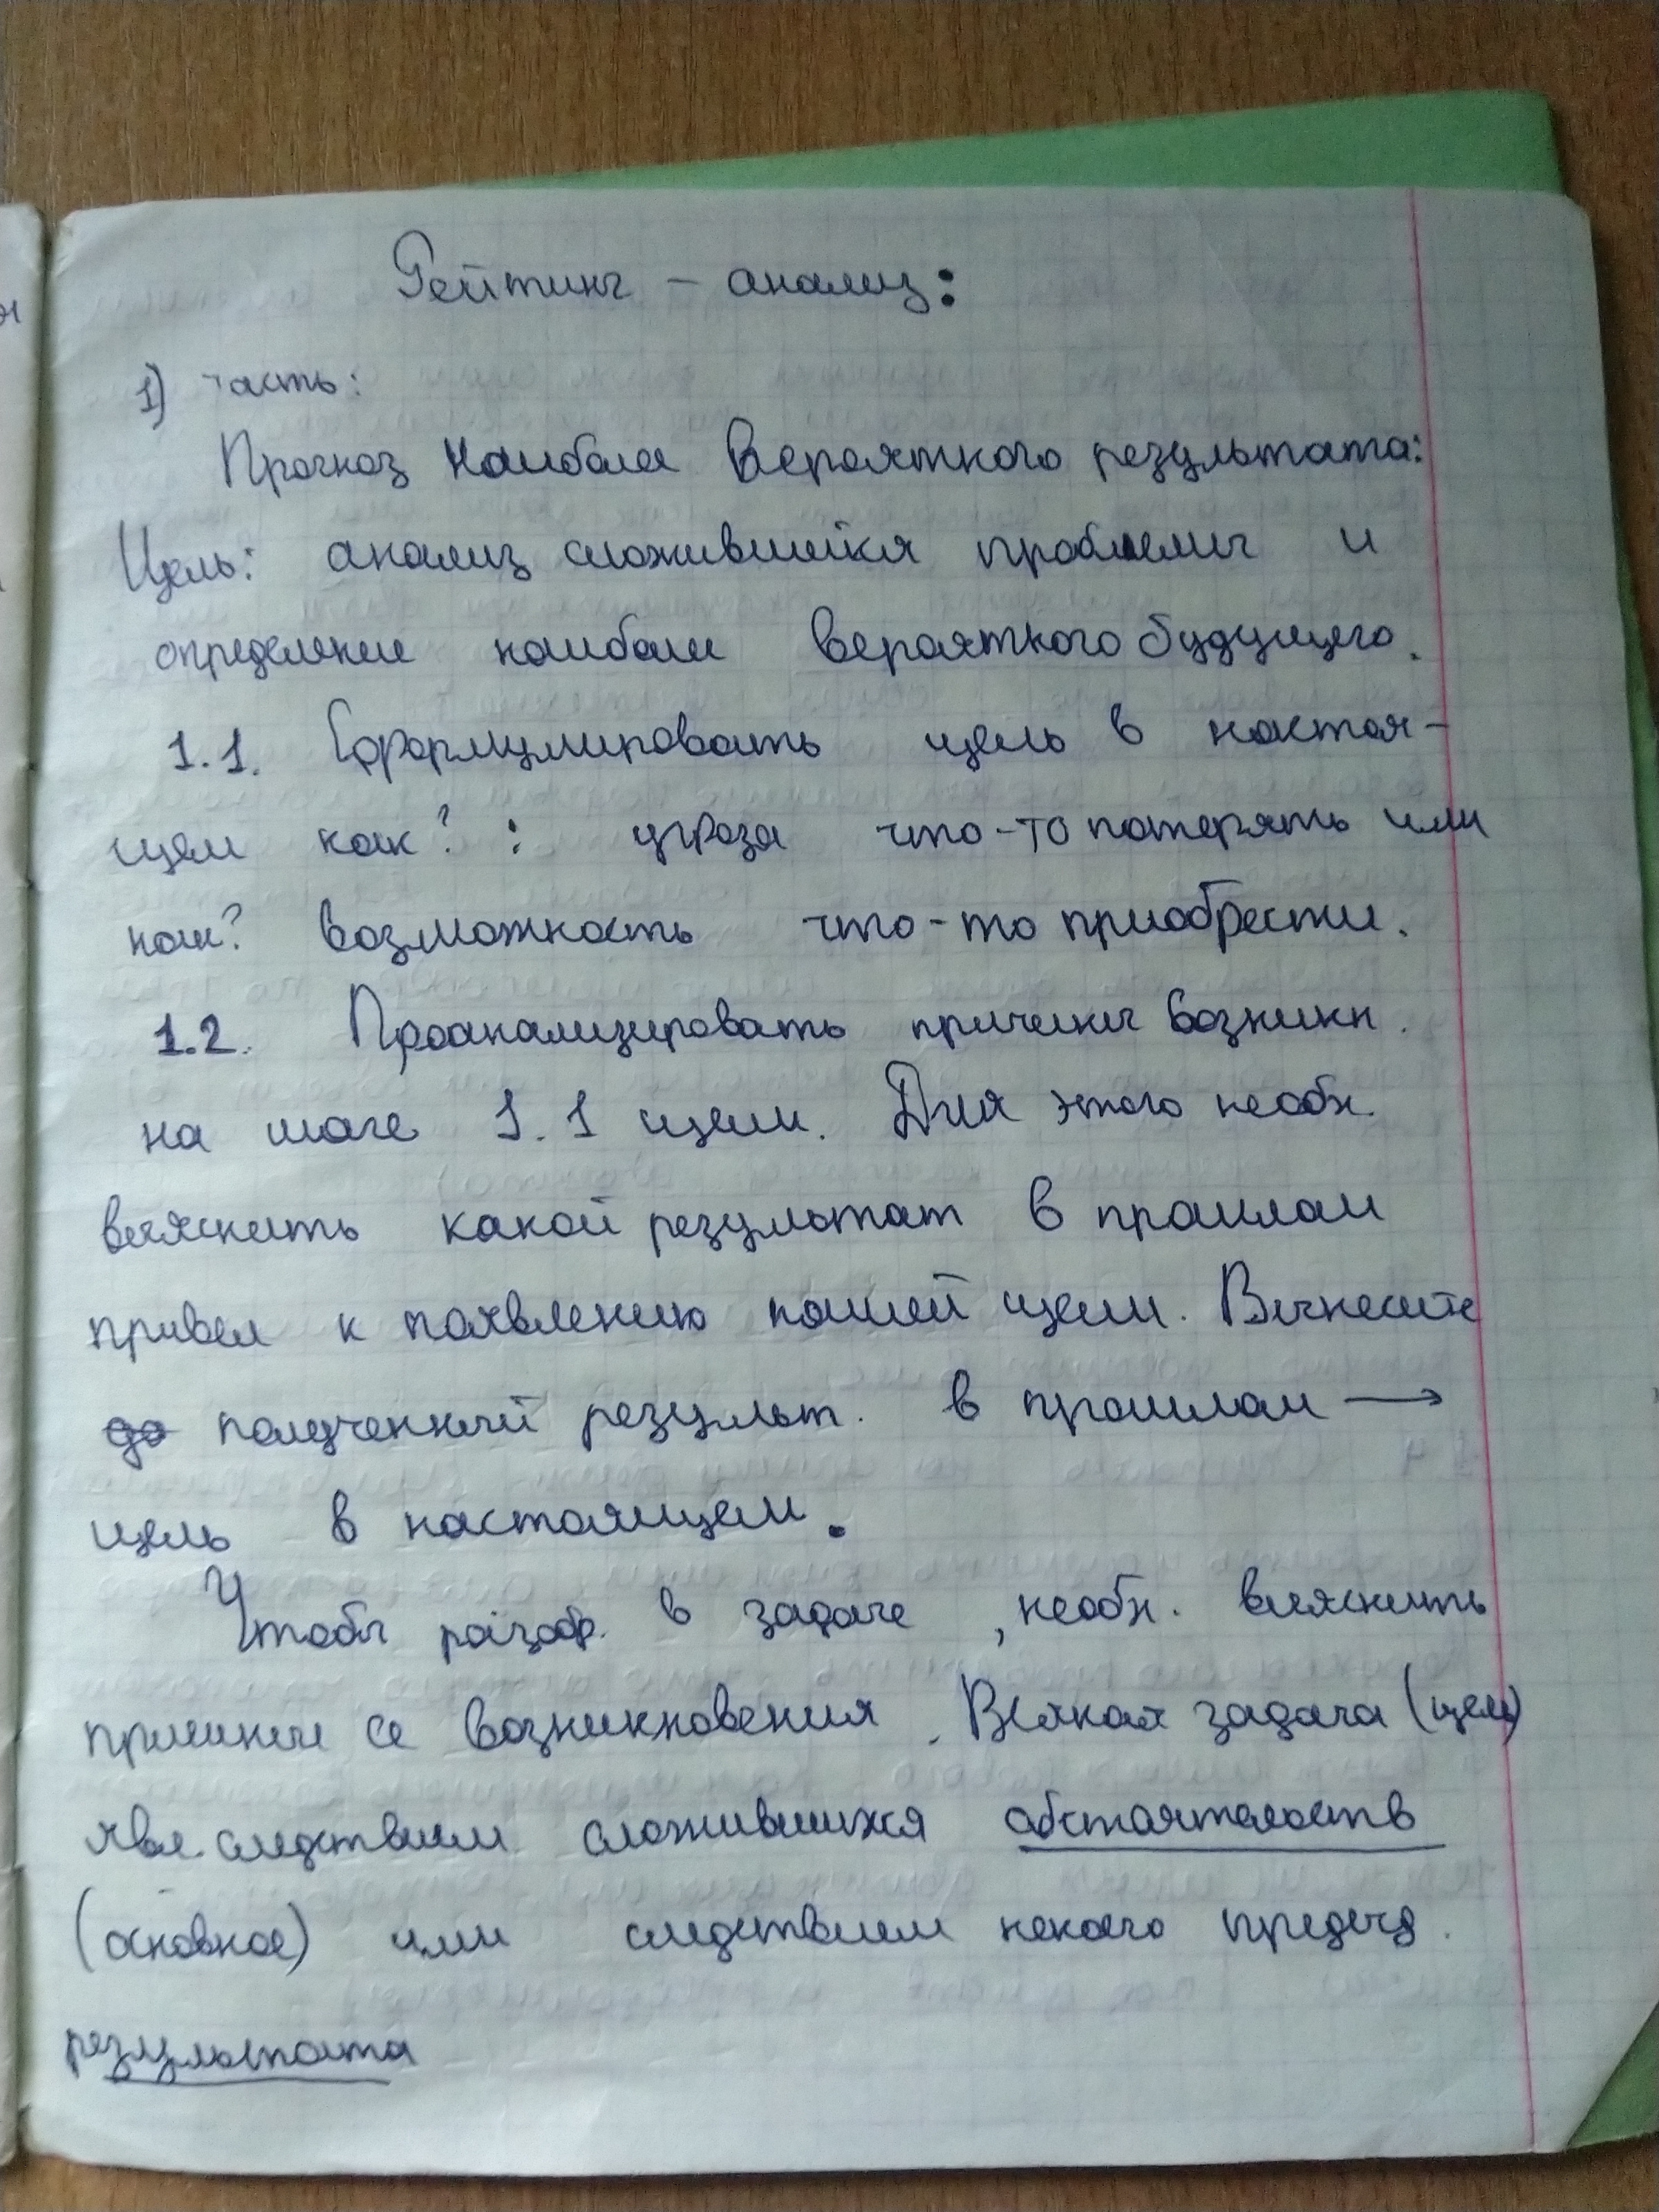 Рейтинг - анализ:
1) часть:
Прогноз наиболее вероятного результата:
Цель: анализ сложившейся проблемы и
определение наиболее вероятного будущего.
1.1. Сформулировать цель в настоя-
щем как? : угроза что-то потерять или
как? возможность что-то приобрести.
1.2. Проанализировать причины возникн.
на шаге 1.1 цели. Для этого необх.
выяснить какой результат в прошлом
привел к появлению нашей цели. Вынесите
полученный результ. в прошлом →
цель в настоящем.
Чтобы разобр. в задаче, необх. выяснить
причины ее возникновения. Всякая задача (цель)
явл. следствием сложившихся обстоятельств
(основное) или следствием некоего предыд.
результата